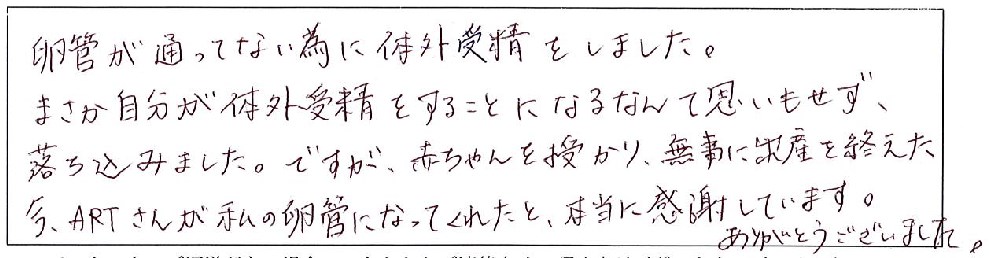 卵管が通ってない為に体外受精をしました。
まさか自分が体外受精をすることになるなんて思いもせず、
落ち込みました。ですが、赤ちゃんを授かり、無事に出産を終えた
今、ARTさんが私の卵管になってくれたと、本当に感謝しています。
ありがとうございました。